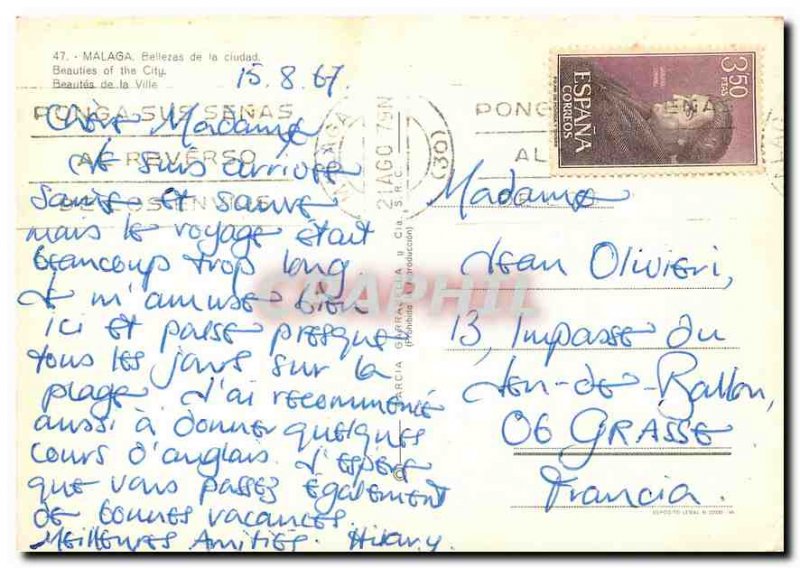 47. - MALAGA. Bellezas de la ciudad.
Beauties of the City.
Beautés de la Ville
15.8.67.
PONGA SUS SEÑAS
AL REVERSO
DE LOS ENVIOS
MALAGA
21 AGO 79N
(30)
PONGA SUS SEÑAS
AL
3,50
PTAS
ESPAÑA
CORREOS
Chère Madame
Je suis arrivée
saine et sauve
mais le voyage était
beaucoup trop long.
Je m'amuse bien
ici et passe presque
tous les jours sur la
plage. J'ai recommencé
aussi à donner quelques
cours d'anglais. J'espère
que vous passez également
de bonnes vacances.
Meilleures Amitiés. Hilary.
GARCIA GARRABELLA y Cia. S.R.C.
(Prohibida la reproducción)
Madame
Jean Olivieri,
13, Impasse du
Jeu-de-Ballon,
06 GRASSE
Francia.
CPAPHIL